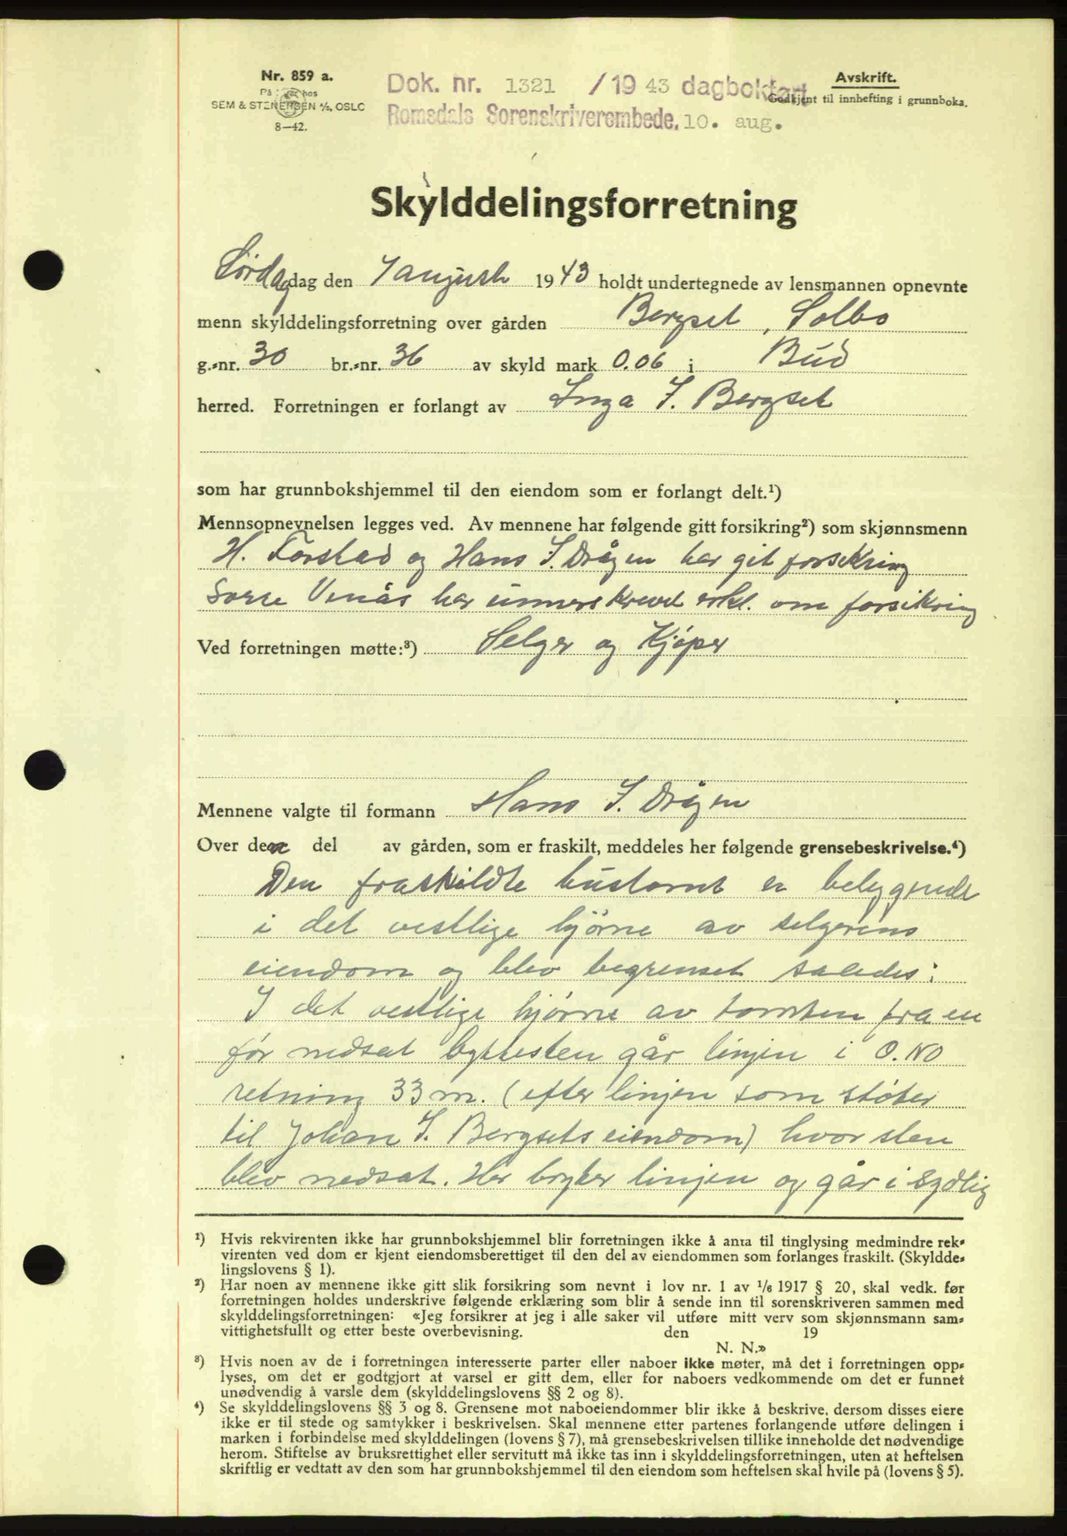 Nr. 859 a.
På lager hos
SEM & STENERSEN A/S, OSLO
8—42.
Dok. nr. 1321 /1943 dagbokført
Romsdals Sorenskriverembede, 10. aug.
Avskrift.
Godkjent til innhefting i grunnboka.
Skylddelingsforretning
Lørdag dag den 7 august 1943 holdt undertegnede av lensmannen opnevnte
menn skylddelingsforretning over gården Bergset, Solbo
g.-nr. 30 br.-nr. 36 av skyld mark 0.06 i Bud
herred. Forretningen er forlangt av Inga J. Bergset
som har grunnbokshjemmel til den eiendom som er forlangt delt.¹)
Mennsopnevnelsen legges ved. Av mennene har følgende gitt forsikring²) som skjønnsmenn
H. Torstad og Hans J. Drågen har git forsikring
Sverre Venås har underskrevet erkl. om forsikring
Ved forretningen møtte:³) Selger og Kjøper
Mennene valgte til formann Hans J. Drågen
Over den del av gården, som er fraskilt, meddeles her følgende grensebeskrivelse.⁴)
Den fraskildte hustomt er beliggende
i det vestlige hjørne av selgerens
eiendom og blev begrenset således:
I det vestlige hjørne av tomten fra en
før nedsat byttesten går linjen i O.NO
retning 33 m. (efter linjen som støter
til Johan J. Bergsets eiendom) hvor sten
blev nedsat. Her bryter linjen og går i sydlig
¹) Hvis rekvirenten ikke har grunnbokshjemmel blir forretningen ikke å anta til tinglysing medmindre rek-
virenten ved dom er kjent eiendomsberettiget til den del av eiendommen som forlanges fraskilt. (Skyldde-
lingslovens § 1).
²) Har noen av mennene ikke gitt slik forsikring som nevnt i lov nr. 1 av 1/6 1917 § 20, skal vedk. før
forretningen holdes underskrive følgende erklæring som blir å sende inn til sorenskriveren sammen med
skylddelingsforretningen: «Jeg forsikrer at jeg i alle saker vil utføre mitt verv som skjønnsmann sam-
vittighetsfullt og etter beste overbevisning. den 19
N. N.»
³) Hvis noen av de i forretningen interesserte parter eller naboer ikke møter, må det i forretningen opp-
lyses, om det er godtgjort at varsel er gitt dem, eller for naboers vedkommende om det er funnet
unødvendig å varsle dem (skylddelingslovens §§ 2 og 8).
⁴) Se skylddelingslovens §§ 3 og 8. Grensene mot naboeiendommer blir ikke å beskrive, dersom disses eiere
ikke er til stede og samtykker i beskrivelsen. Skal mennene etter partenes forlangende utføre delingen i
marken i forbindelse med skylddelingen (lovens § 7), må grensebeskrivelsen tillike inneholde det nødvendige
herom. Stiftelse av bruksrettighet eller servitutt må ikke tas inn i skylddelingsforretningen, uten at heftelsen
skriftlig er vedtatt av den som har grunnbokshjemmel til den eiendom som heftelsen skal hvile på (lovens § 5).